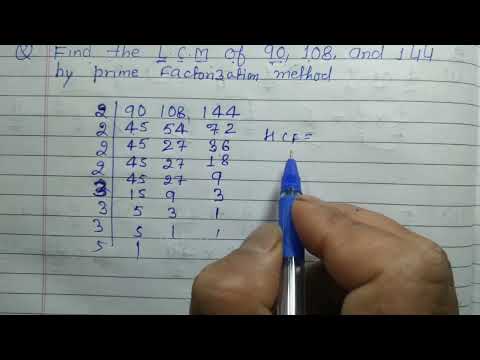 Q Find the L.C.M of 90, 108, and 144
by prime Factorization method
2 | 90 108, 144
2 | 45 54 72
2 | 45 27 36
2 | 45 27 18
3 | 45 27 9
3 | 15 9 3
3 | 5 3 1
5 | 5 1 1
1
HCF =